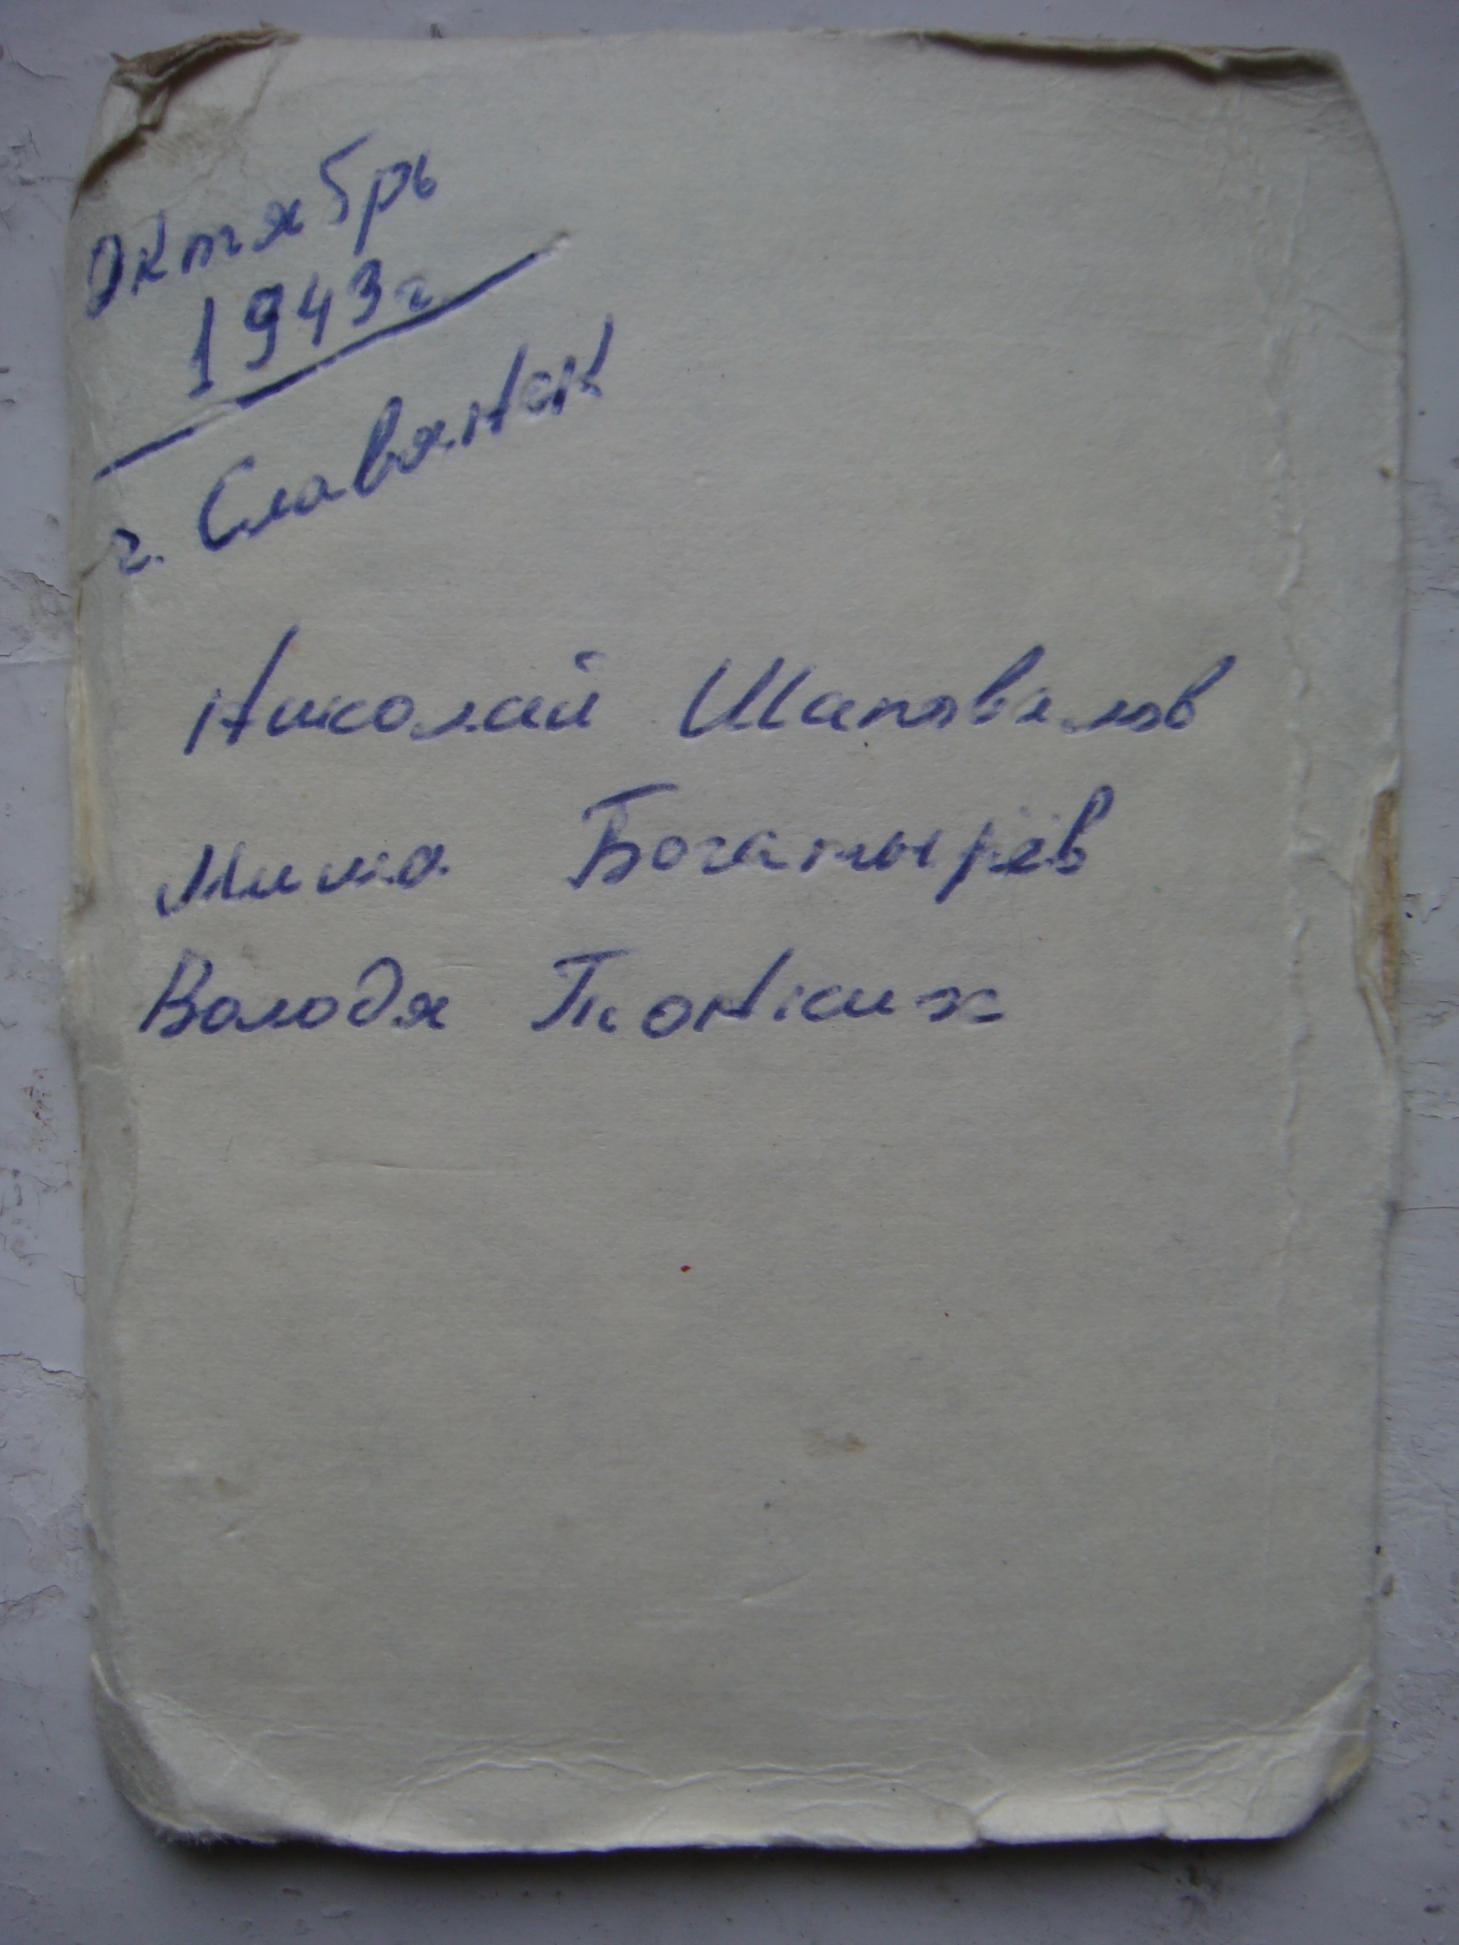 Октябрь
1943г
г. Славянск
Николай Шаповалов
Миша Богатырёв
Володя Тонких